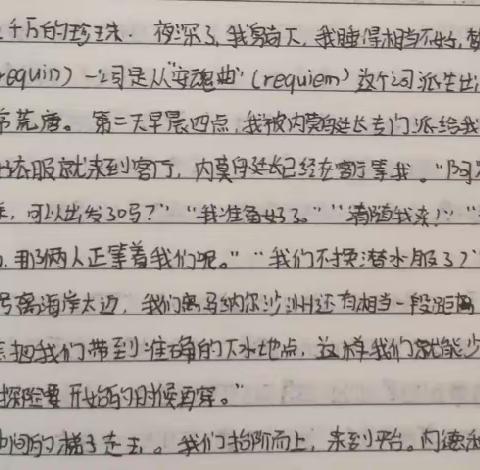 千万的珍珠．夜深了，我躺下，我睡得相当不好，
requin）一词是从“安魂曲”（requiem）这个词派生出
荒唐。第二天早晨四点，我被内莫船长专门派给我
衣服就来到客厅，内莫船长已经在客厅等我。“阿
，可以出发了吗？”“我准备好了。”“请随我来！”“
，那俩人正等着我们呢。”“我们不换潜水服了？”
号离海岸太近，我们离马纳尔沙洲还有相当一段距离
把我们带到准确的下水地点，这样我们就能少
探险要开始的时候再穿。”
中间的梯子走去。我们拾阶而上，来到平台。内德